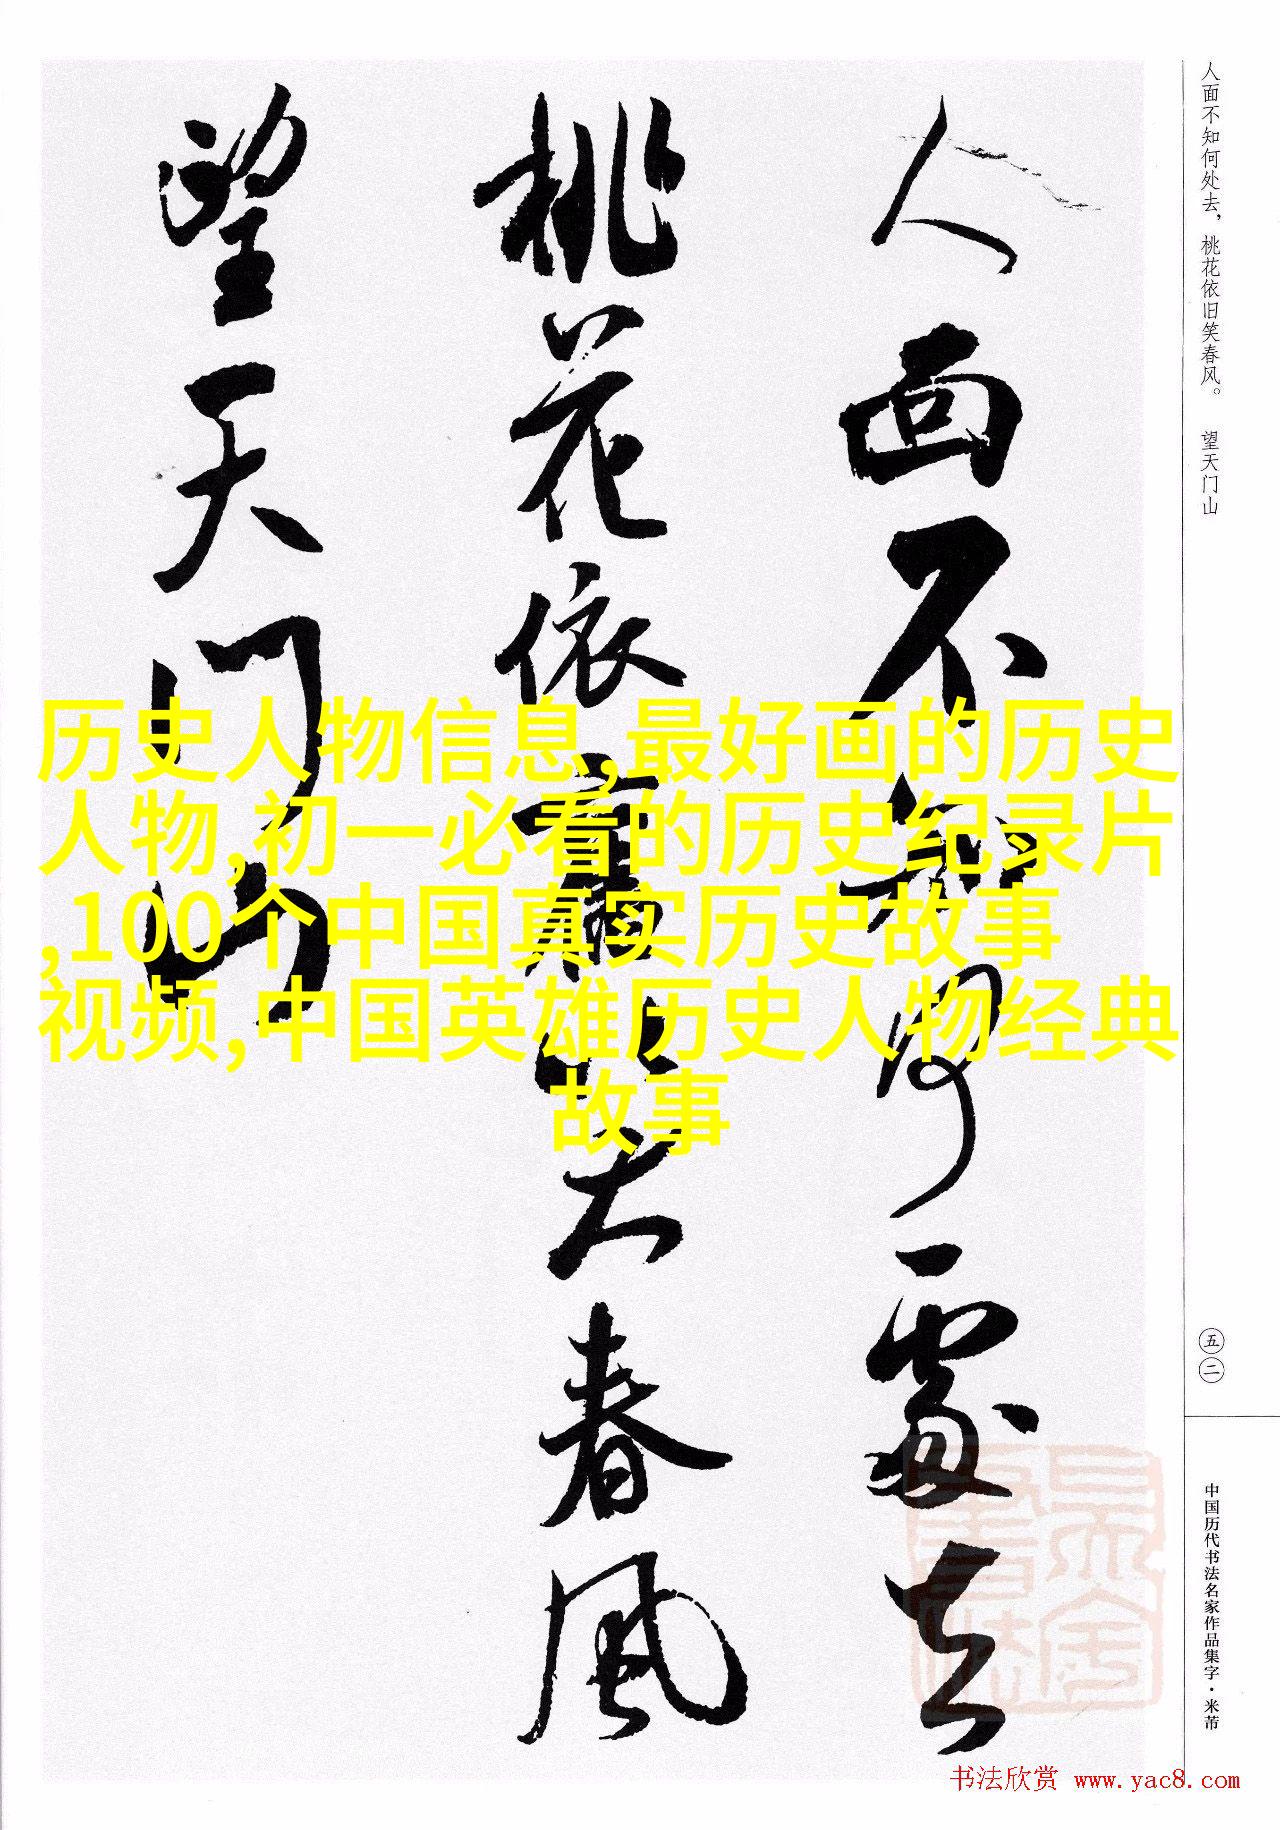 人面不知何处去，桃花依旧笑春风。 望天门山
人面不知何處去
桃花依舊笑春風
望天门山
历史人物信息,最好画的历史
人物,初一必看的历史纪录片
,100个中国真实历史故事
视频,中国英雄历史人物经典
故事
五二
中国历代书法名家作品集字·米芾
书法欣赏 www.yac8.com